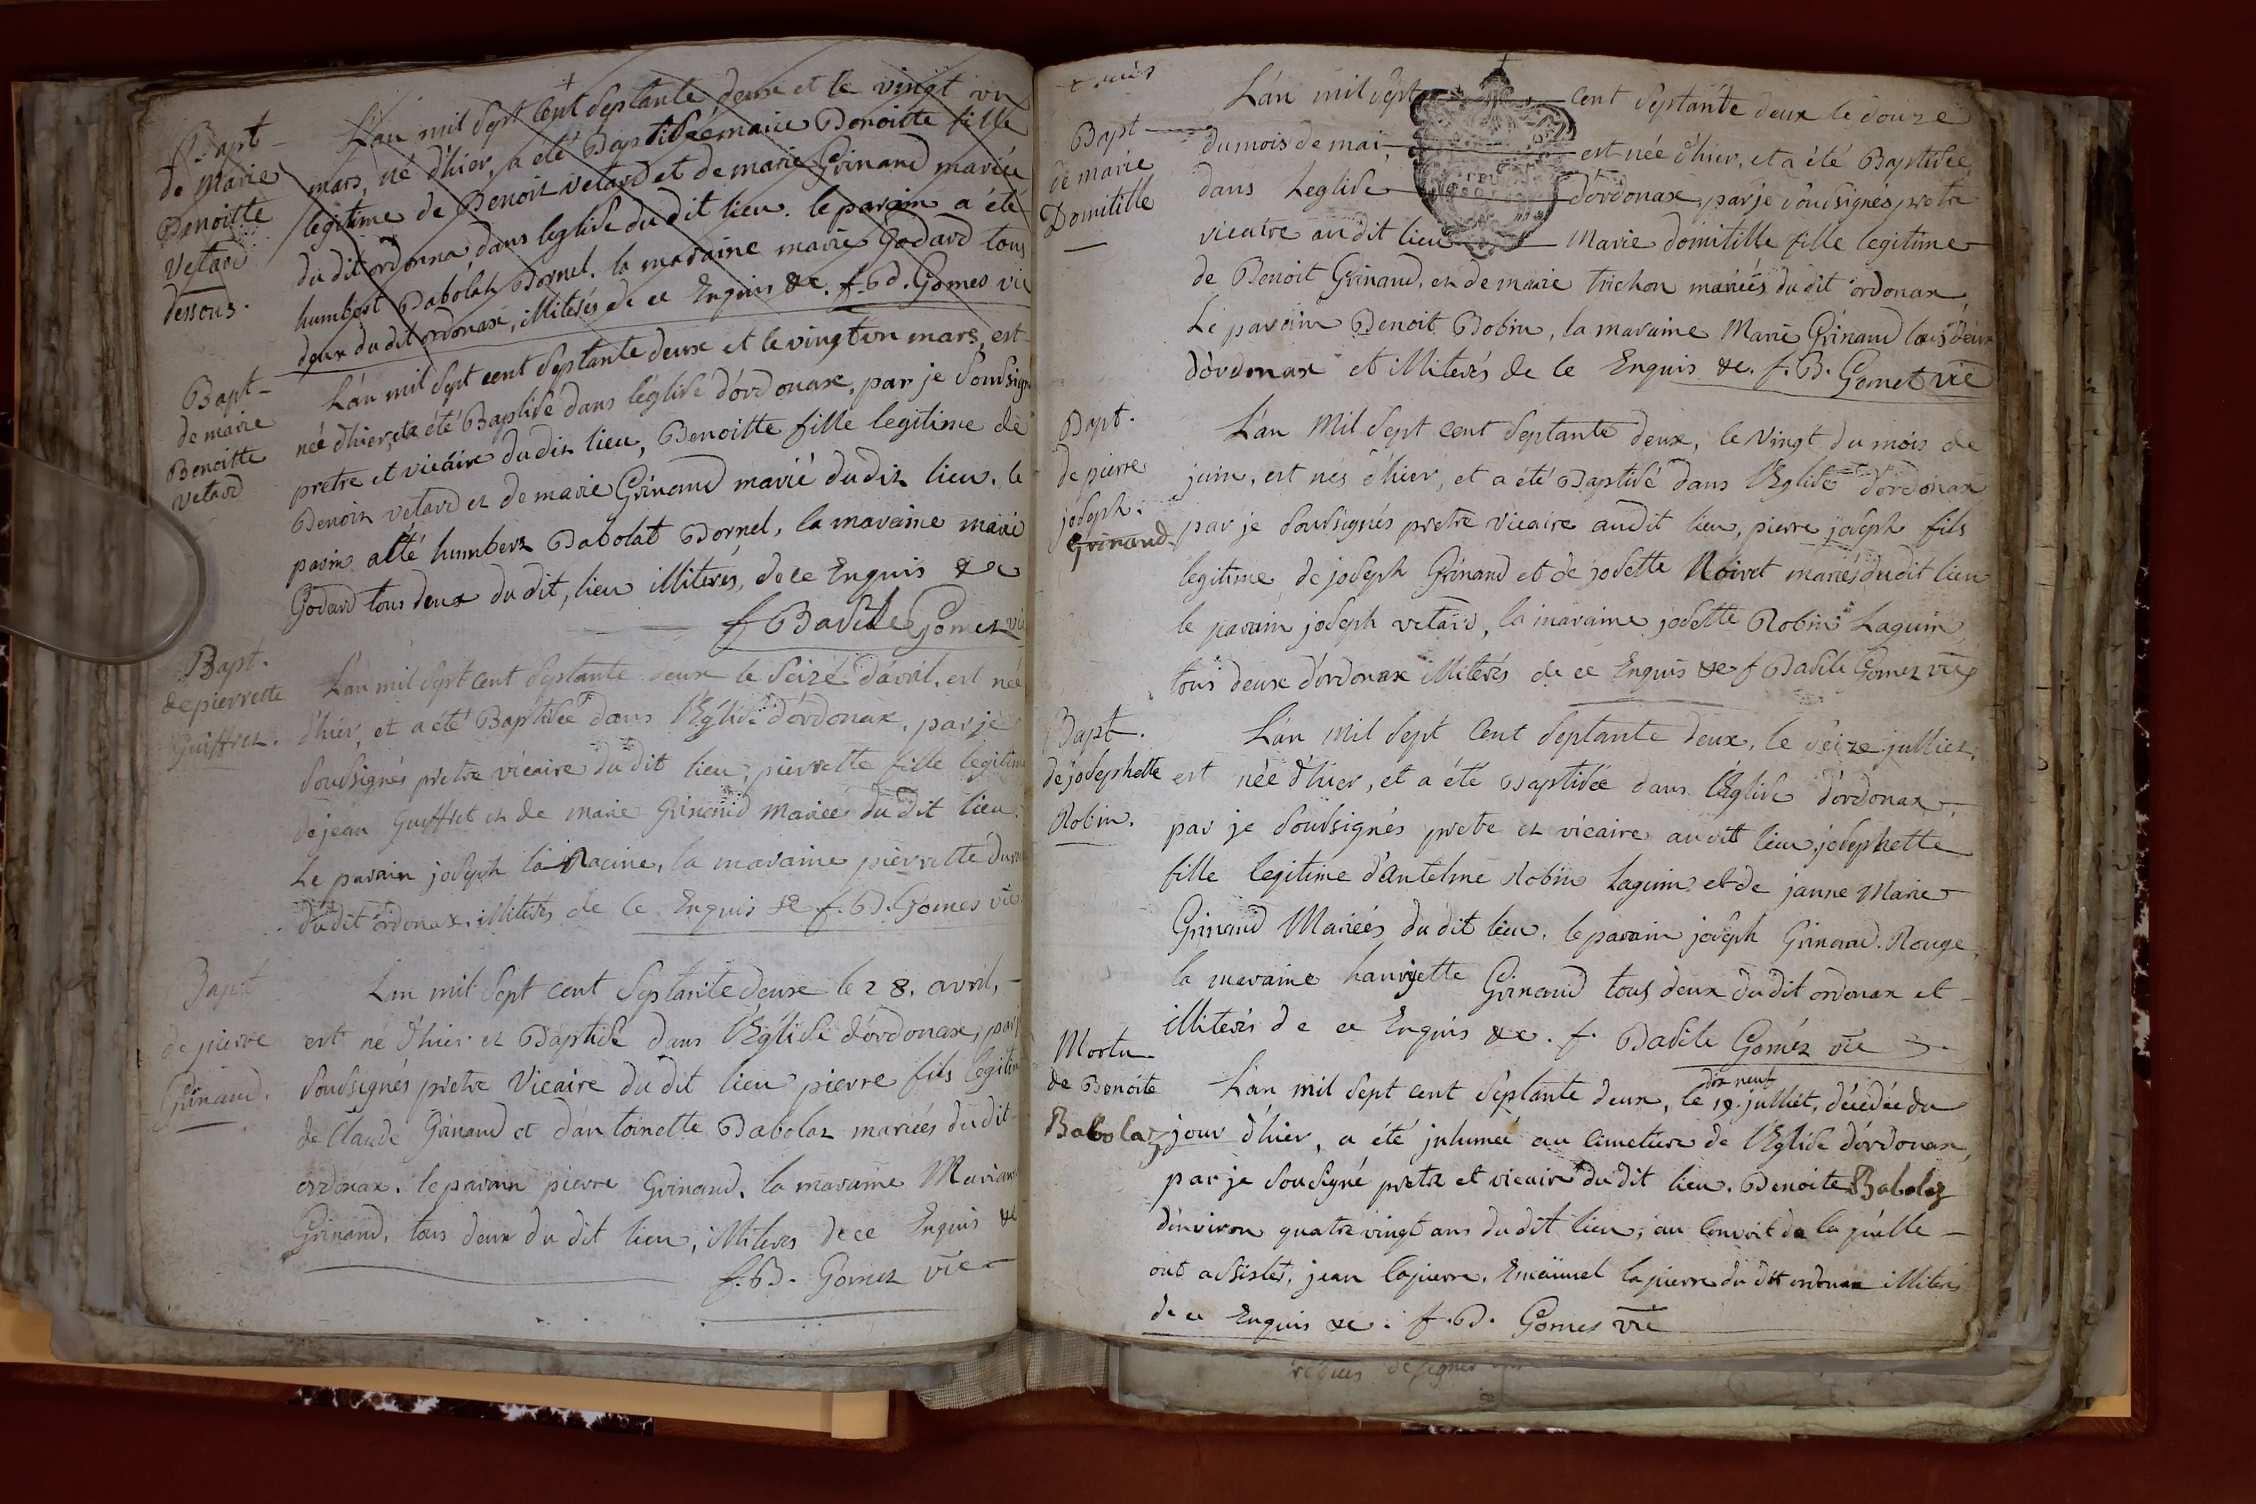 Bapt
de Marie
Benoitte
Vetard
dessous.
L'an mil sept cent septante deux et le vingt un
mars, né d'hier, a été Baptisée marie Benoitte fille
legitime de Benoit vetard et de marie Grinand mariée
du dit ordonna, dans leglise du dit lieu. le parain a été
humbert Babolat Dornel. la maraine marie Godard tous
deux du dit ordonax, illiterés de ce Enquis &c. f. B. Gomes vic
Bapt
de marie
Benoitte
vetard
L'an mil sept cent septante deux et le vingt un mars, est
née d'hier, et a été Baptisé dans l'eglise d'ordonax, par je soussigné
pretre et vicaire du dit lieu, Benoitte fille legitime de
Benoit vetard et de marie Grinand marié du dit lieu. le
parin a été humbert Babolat Dornel, la maraine marie
Godard tous deux du dit, lieu illiterés, de ce Enquis &c
f Basile Gomez vic
Bapt.
de pierrette
Guiffret.
L'an mil sept cent septante deux le seize d'avril, est née
d'hier, et a été Baptisée dans l'Eglise d'ordonax, par je
soussignés pretre vicaire du dit lieu, pierrette fille legitime
de jean Guiffret et de marie Grinand mariés du dit lieu.
Le parain joseph la Racine, la maraine pierrette
du dit ordonax. illiterés de ce Enquis &c f. B. Gomes vic
Bapt
de pierre
Grinand.
L'an mil sept cent septante deux le 28. avril,
est né d'hier et Baptisé dans l'Eglise d'ordonax, par
soussignés pretre Vicaire du dit lieu pierre fils legitime
de Claude Grinand et d'antoinette Babolat mariés du dit
ordonax. le parain pierre Grinand. la maraine Mariane
Grinand, tous deux du dit lieu, illiteres de ce Enquis &c
f. B. Gomez vic
Bapt
de marie
Domitille
L'an mil sept cent septante deux le douze
du mois de mai, est née d'hier, et a été Baptisée
dans L'eglise d'ordonax, par je soussignés pretre
vicaire au dit lieu Marie domitille fille legitime
de Benoit Grinand, et de marie trichon mariés du dit ordonax
Le parain Benoit Bobin, la maraine Marie Grinand tous deux
d'ordonax et illiterés de ce Enquis &c. f. B. Gomet vic
Bapt.
de pierre
joseph.
Grinand
L'an Mil sept cent septante deux, le vingt du mois de
juin, est nés d'hier, et a été Baptisé dans l'Eglise d'ordonax
par je soussignés pretre vicaire au dit lieu, pierre joseph fils
legitime de joseph Grinand et de josette Noiret mariés du dit lieu
le parain joseph vetard, la maraine josette Robin Laguin,
tous deux d'ordonax illiterés de ce Enquis &c f Basile Gomez vic
Bapt.
de josephette
Robin.
L'an Mil sept cent septante deux, le seize julliet,
est née d'hier, et a été Baptisée dans l'Eglise d'ordonax,
par je soussignés pretre et vicaire au dit lieu, josephette
fille legitime d'antelme Robin Laguin et de janne Marie
Grinand Mariés du dit lieu. le parain joseph Grinand. Rouge,
la maraine hanriette Grinand tous deux du dit ordonax et
illiterés de ce Enquis &c. f. Basile Gomez vic
Mortu
de Benoite
Babolaz
L'an mil sept cent septante deux, le 19. julliet, décédée du
dix neuf
jour d'hier, a été jnhumeé au cimetiere de l'Eglise d'ordonax,
par je soussigné pretre et vicaire du dit lieu. Benoite Babolaz
d'environ quatre vingt ans du dit lieu, au convoit de la quelle
ont assistés, jean lapierre, Emanuel lapierre du dit ordonax illiterés
de ce Enquis &c. f. B. Gomes vic